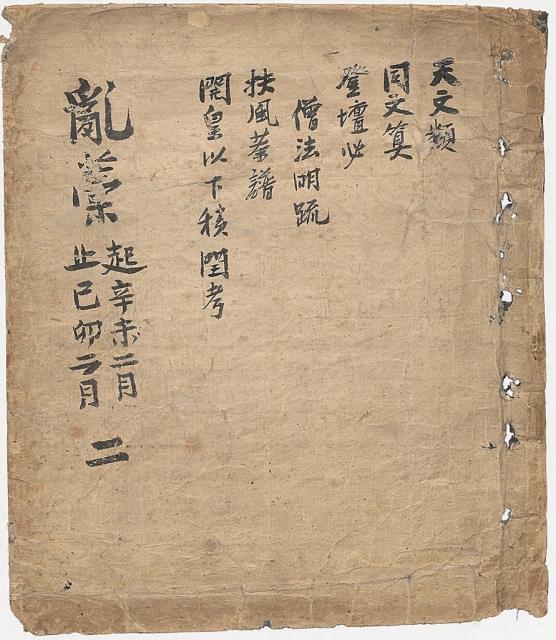 天文類
同文算
登壇必
僧法明疏
扶風茶譜
開皇以下積閏考
亂藁
起辛未二月
止己卯月
二